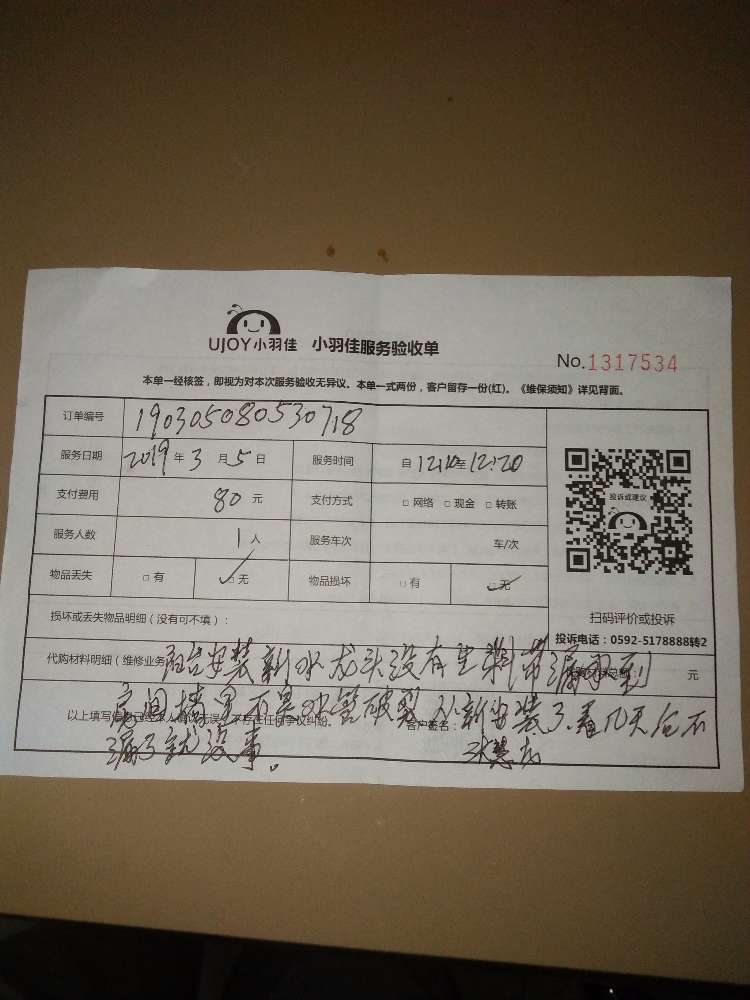 UJOY小羽佳 小羽佳服务验收单
No.1317534
本单一经核签，即视为对本次服务验收无异议。本单一式两份，客户留存一份(红)。《维保须知》详见背面。
订单编号 190305080530718
服务日期 2019 年 3 月 5 日 服务时间 自 12:10 至 12:20
支付费用 80 元 支付方式 □ 网络 □ 现金 □ 转账
服务人数 1 人 服务车次 车/次
物品丢失 □ 有 □ 无 物品损坏 □ 有 □ 无
投诉或建议
扫码评价或投诉
投诉电话：0592-5178888转2
损坏或丢失物品明细（没有可不填）：
代购材料明细（维修业务 阳台安装新水龙头没有生料带漏水到 元
房间墙里不是水管破裂从新安装了看几天后不
以上填写信息已经本人确认无误，不存在任何争议纠纷。 客户签名：
漏了就没事。